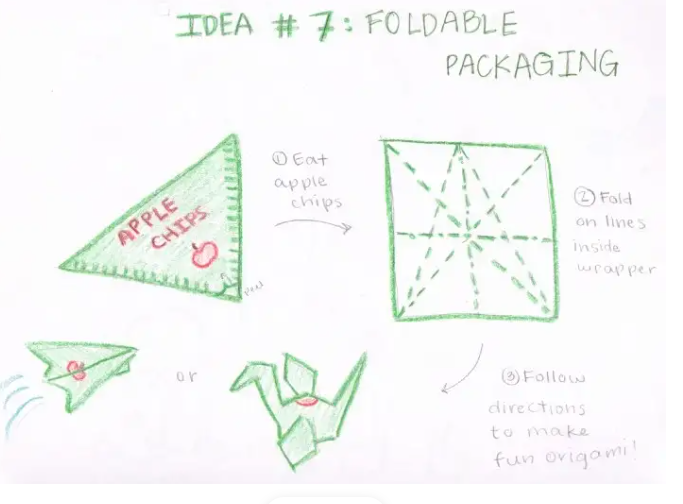 IDEA # 7: FOLDABLE
PACKAGING
① Eat
apple
chips
APPLE
CHIPS
② Fold
on lines
inside
wrapper
or
③ Follow
directions
to make
fun origami!